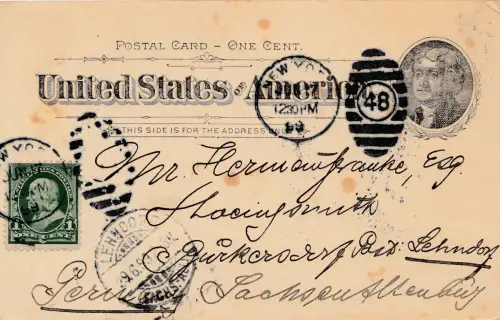 POSTAL CARD – ONE CENT.
United States OF America
NEW YORK
12 30 PM
99
48
THIS SIDE IS FOR THE ADDRESS ONLY
NEW YORK
1 ONE CENT 1
Mr Hermann Franke, Esq.
LEHNDORF
Post. Lehndorf
Germany, Sachsen Altenburg